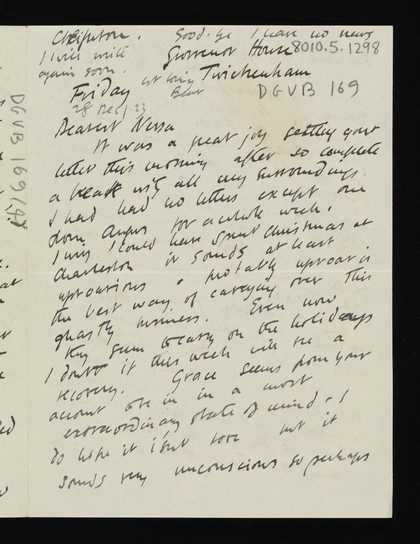 Good-bye I have no news
I will write
again soon.
Grosvenor House
8010.5.1298
Twickenham
Friday
28 Dec/23
DGVB 169
DGVB 169/4
Dearest Nessa
It was a great joy getting your
letter this morning after so complete
a break with all my surroundings.
I had had no letters except one
from Angus for a whole week.
I wish I could have spent Christmas at
Charleston it sounds at least
uproarious & probably uproar is
the best way of carrying over this
ghastly business. Even now
they seem to carry on the holidays
I doubt if this week will see a
recovery. Grace seems from your
account to be in a most
extraordinary state of mind. I
do hope it isn't love but it
sounds very unconscious so perhaps